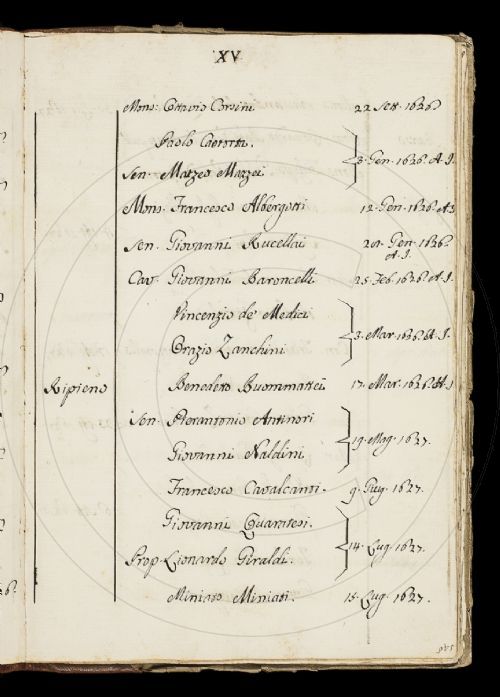 XV
Mons: Ottavio Corsini. 22. Sett. 1626.
Paolo
Sen. Matteo Mazzei 3. Gen. 1626. A. I.
Mons. Francesco Albergotti 12. Gen. 1626. A I
Sen. Giovanni Rucellai Gen. 1626.
A. I.
Cav. Giovanni Baroncelli 25. Feb. 1626. A. I.
Vincenzio de' Medici
3. Mar. 1626. A. I.
Orazio Zanchini
Ripieno Benedetto Buommattei 17. Mar. 1626. A. I
Sen. Pierantonio Antinori
19. Mag. 1627.
Giovanni Naldini
Francesco Cavalcanti. 9. Giug. 1627.
Giovanni Quaratesi.
14. Lug. 1627.
Prop. Lionardo Giraldi.
Miniato Miniati. 18. Lug. 1627.